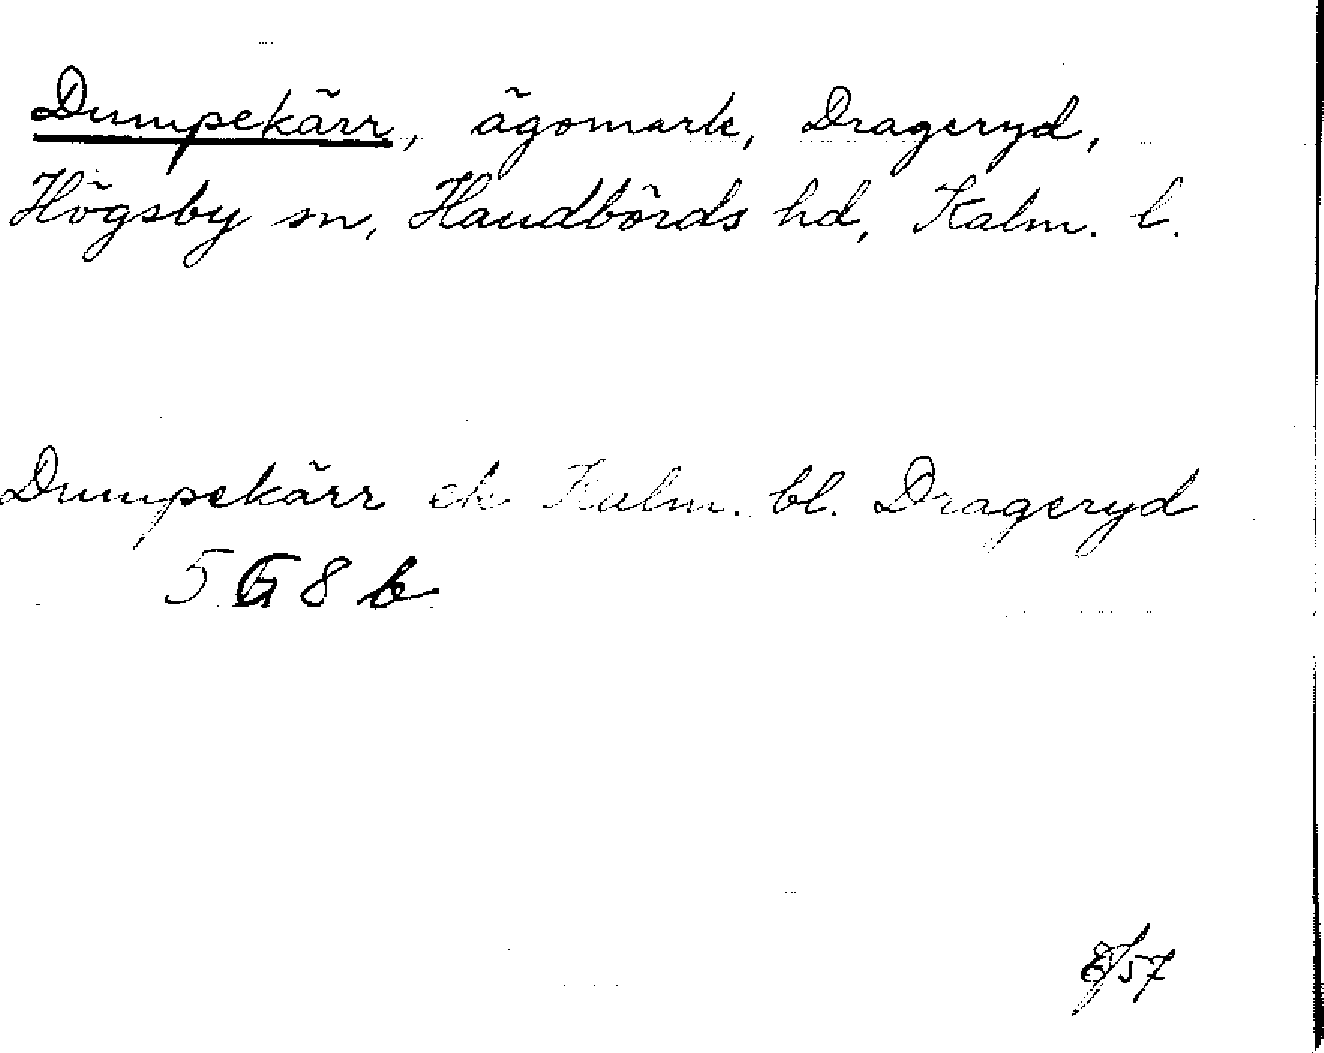 Dumpekärr, ägomark, Drageryd,
Högsby sn, Handbörds hd, Kalm. l.
Dumpekärr ek Kalm. bl. Drageryd
5 G 8 b
/57